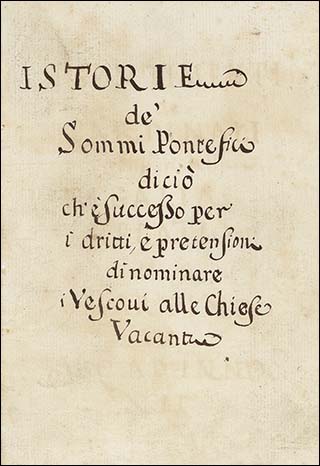 ISTORIE
de'
Sommi Pontefici
di ciò
ch'è successo per
i dritti, e pretensioni
di nominare
i Vescovi alle Chiese
Vacanti